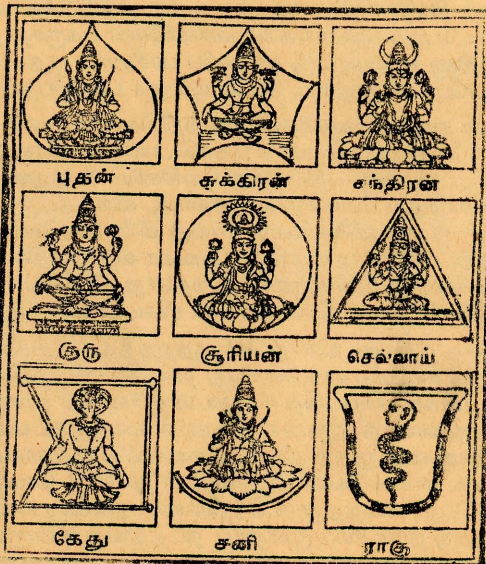 புதன் சுக்கிரன் சந்திரன்
குரு சூரியன் செவ்வாய்
கேது சனி ராகு